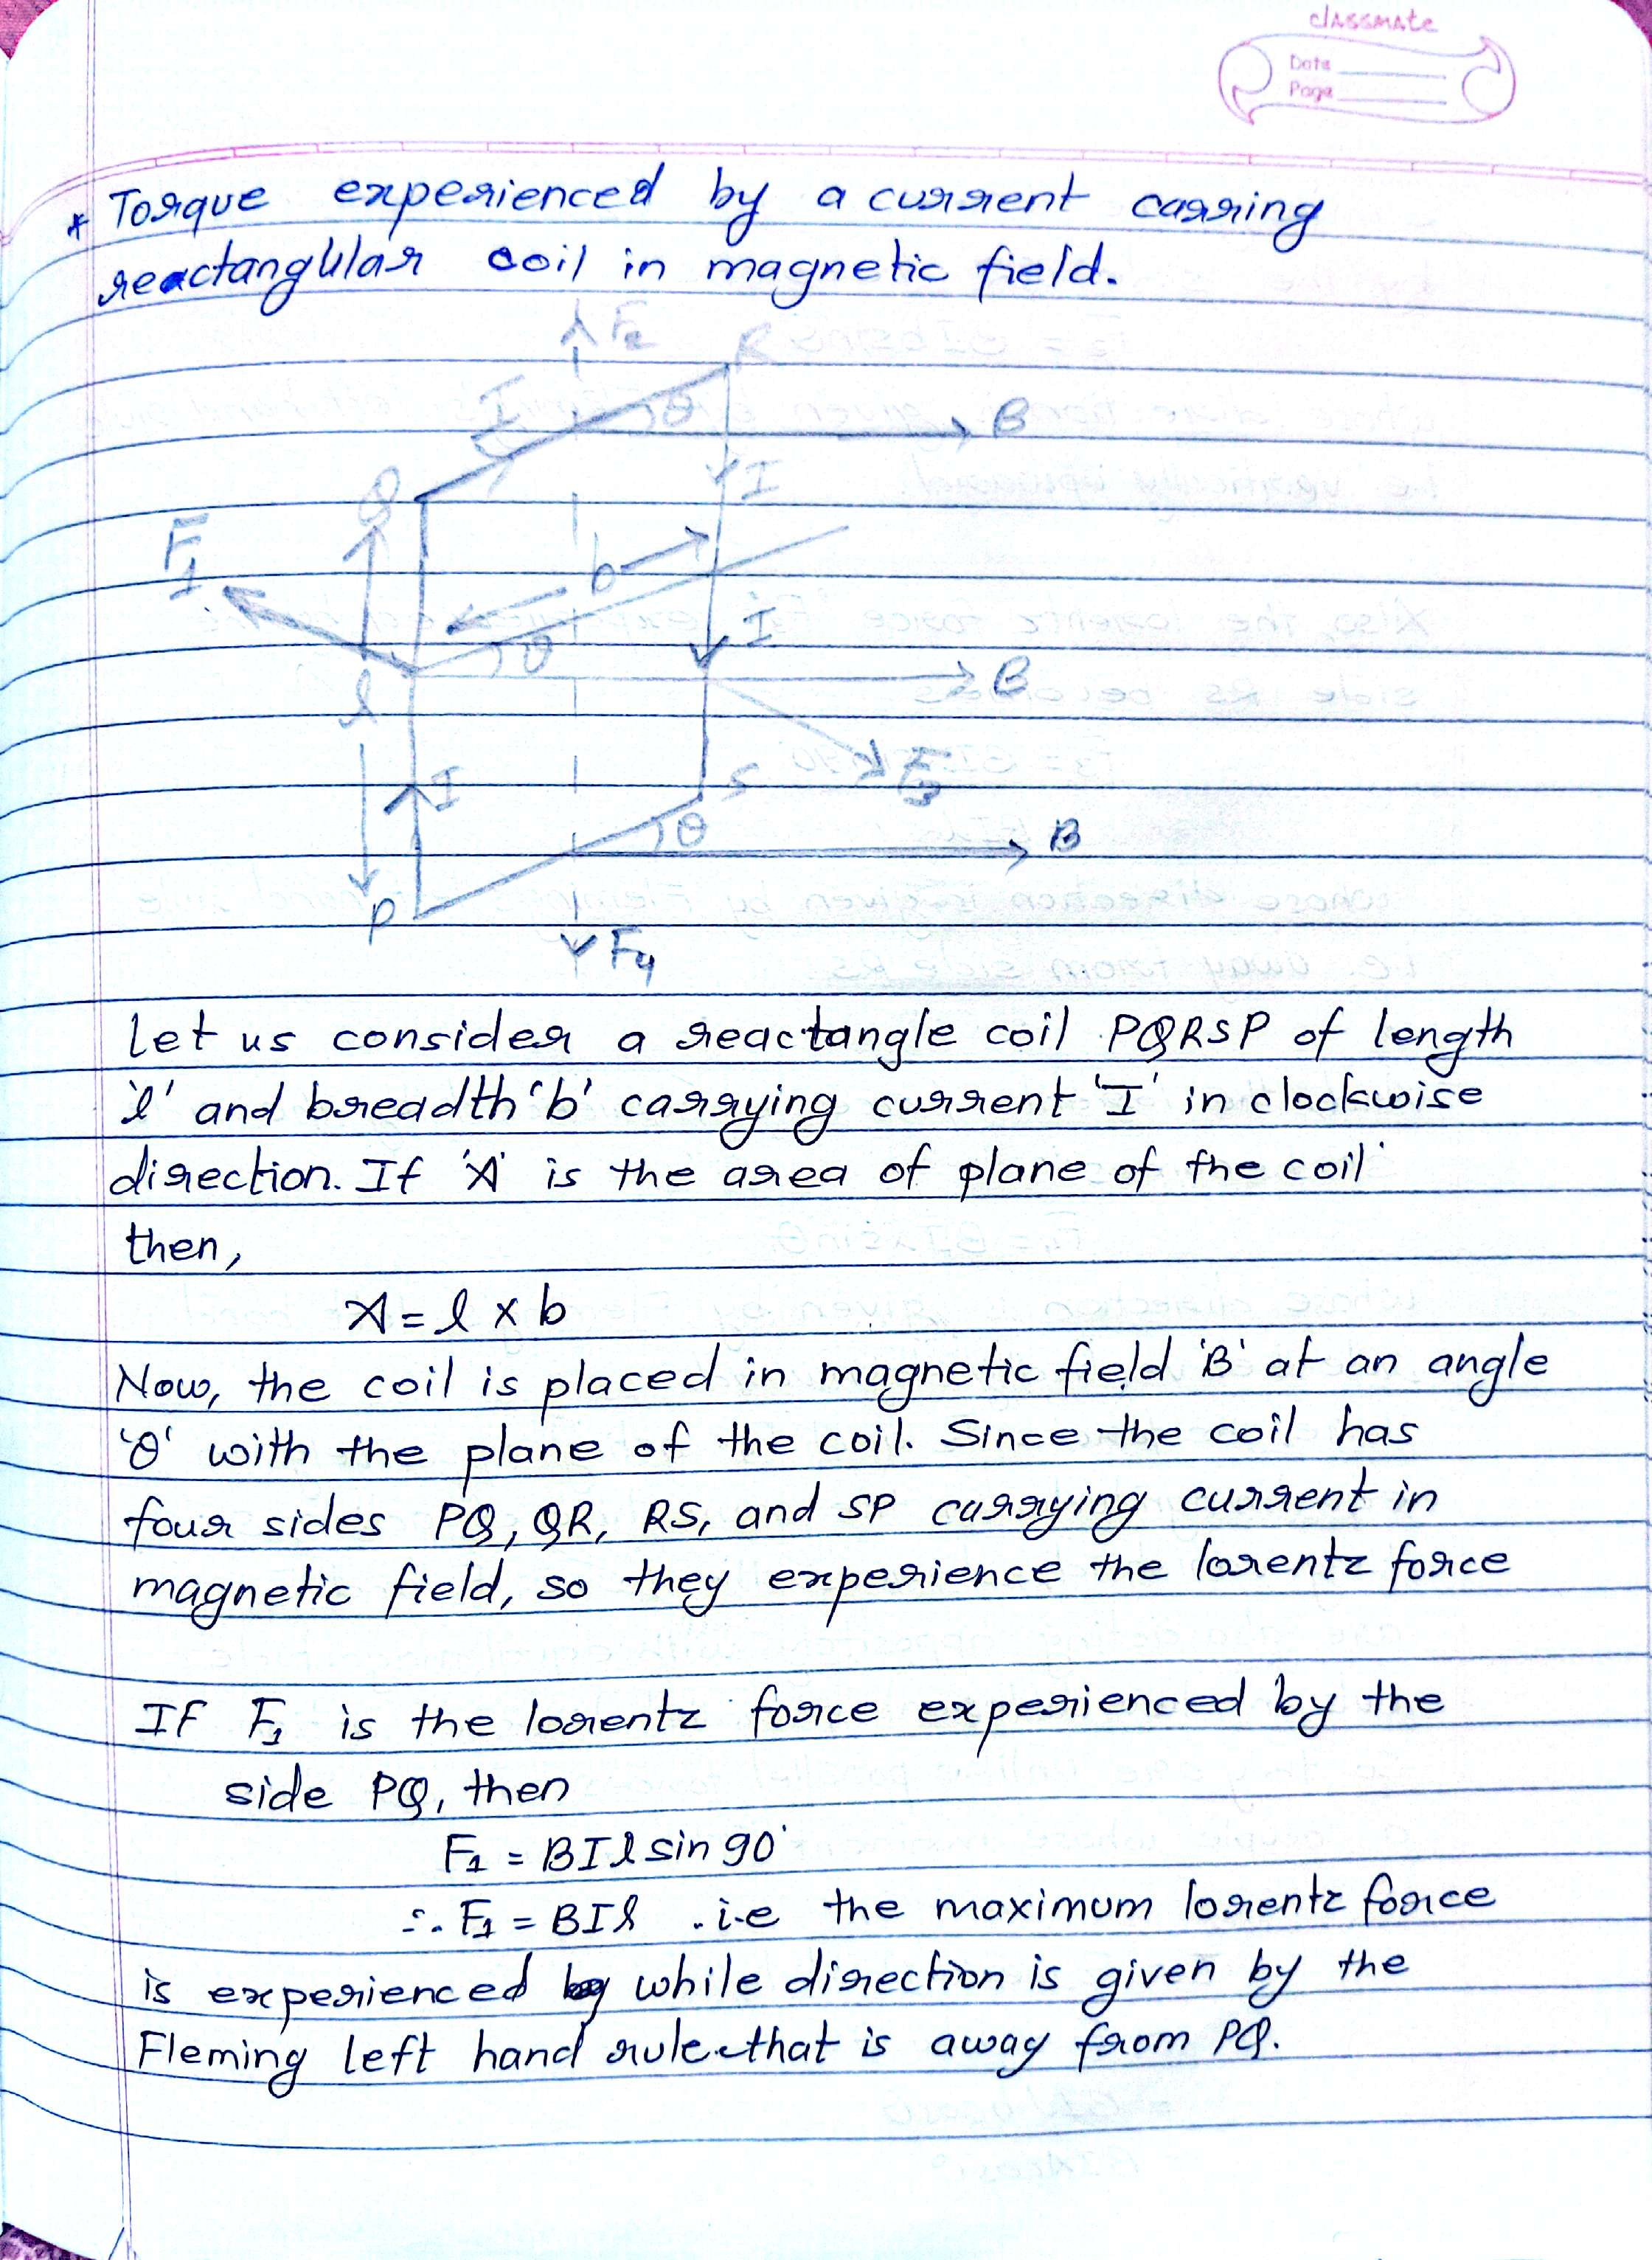 classmate
Date
Page
* Torque experienced by a current carring
reactangular coil in magnetic field.
F2
R
I
θ
B
Q
I
F1
b
I
θ
B
l
F3
I
S
θ
B
P
F4
Let us consider a reactangle coil PQRSP of length
'l' and breadth 'b' carrying current 'I' in clockwise
direction. If 'A' is the area of plane of the coil
then,
A = l x b
Now, the coil is placed in magnetic field 'B' at an angle
'θ' with the plane of the coil. Since the coil has
four sides PQ, QR, RS, and SP carrying current in
magnetic field, so they experience the lorentz force
If F1 is the lorentz force experienced by the
side PQ, then
F1 = BIl sin 90°
∴ F1 = BIl . i.e the maximum lorentz force
is experienced while direction is given by the
Fleming left hand rule that is away from PQ.